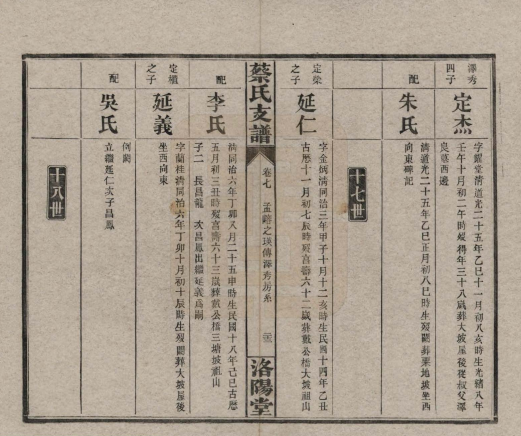 澤秀四子
定杰
字耀堂清道光二十五年乙巳十一月初八亥時生光緒八年
壬午十月初二午時歿得年三十八歲葬大坡屋後從叔父澤
良墓西邊
配
朱氏
清道光二十五年乙巳正月初八巳時生歿闕葬栗地坡坐西
向東碑記
十七世
定榮之子
延仁
字金炳清同治三年甲子十月十二亥時生民國十四年乙丑
古曆十一月初七辰時歿享壽六十二歲葬戴公橋大坡祖山
蔡氏支譜
卷七
孟辭之瑛傳澤秀房系
洛陽堂
配
李氏
清同治六年丁卯八月二十五申時生民國十八年己巳古曆
五月初三丑時歿享壽六十三歲葬戴公橋三塘坡祖山
子二 長昌龍 次昌鳳出繼延義爲嗣
定櫃之子
延義
字蘭桂清同治六年丁卯十月初十辰時生歿闕葬大坡屋後
坐西向東
配
吳氏
俱闕
立繼延仁次子昌鳳
十八世